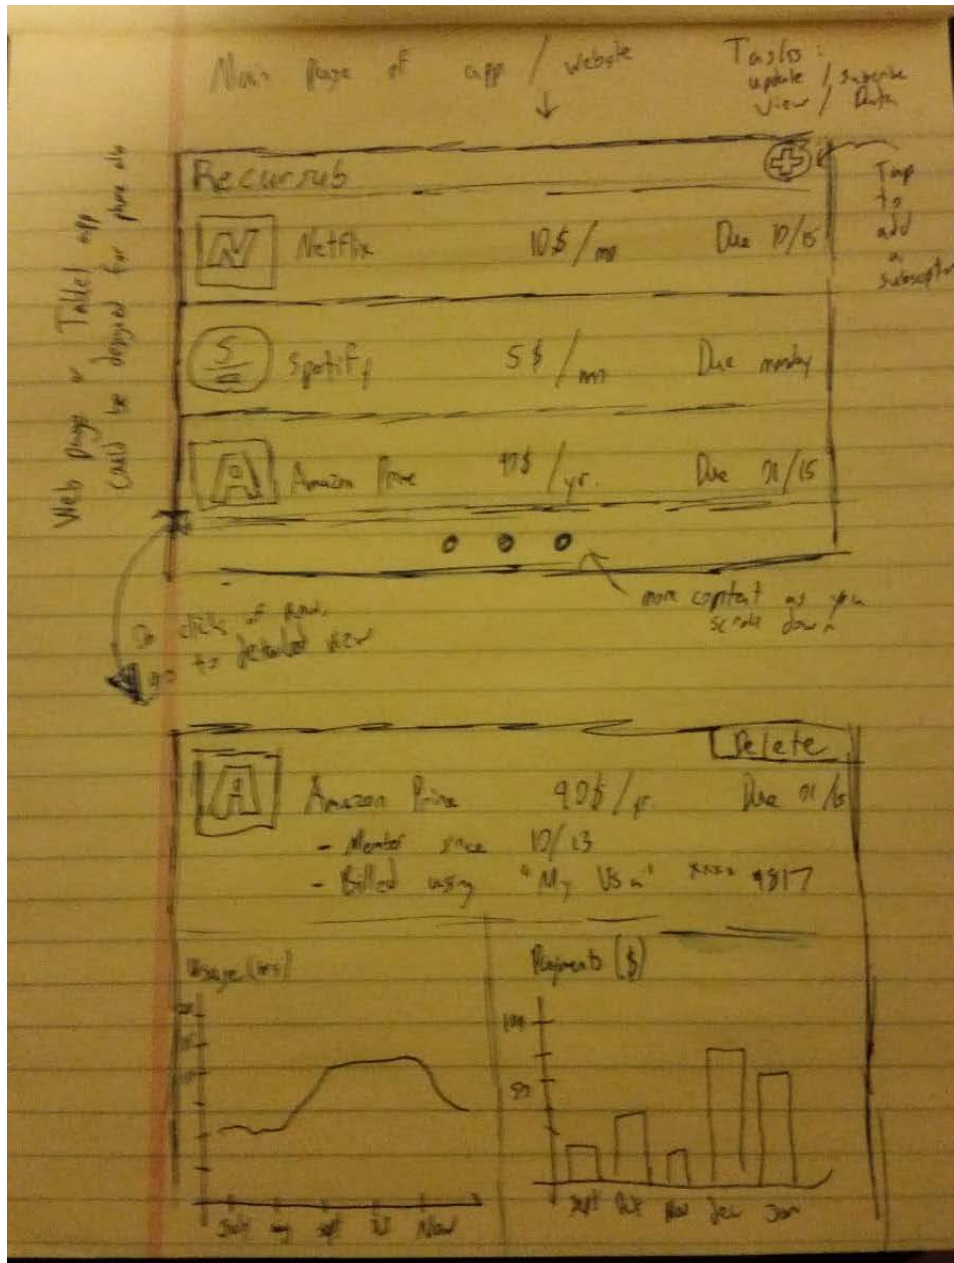 Main page of app / website
↓
Tasks:
update / subscribe
view / Data
Web page or Tablet app
could be designed for phone also
Recursub
Tap
to
add
a
N Netflix 10$/mo Due 10/15
S Spotify 5$/mo Due monday
A Amazon Prime 97$/yr. Due 01/15
more content as you
scroll down
clicks of row,
go to detailed view
Delete
A Amazon Prime 90$/yr. Due 01/15
- Member since 10/13
- Billed using "My Visa" xxxx 9817
Usage (hrs)
Payments ($)
100
sept
Nov
Sept Oct Nov Dec Jan